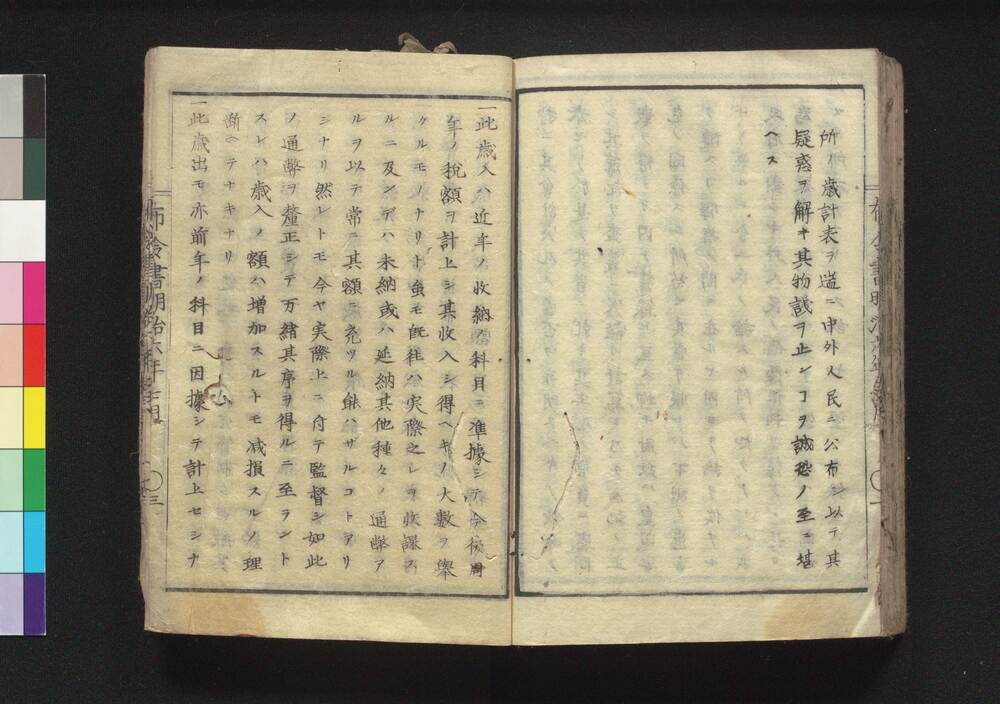 所ノ歳計表ヲ造ニ中外人民ニ公布シ以テ其
疑惑ヲ解キ其物議ヲ止ンコヲ誠恐ノ至ニ堪
ヘス
一此歳入ハ近年ノ収納科目ニ準據シテ今後周
年ノ税額ヲ計上シ其收入シ得ヘキノ大數ヲ舉
クルモノナリト雖モ既往ハ実際之レヲ收課スルニ
ルニ及ンデハ未納或ハ延納其他種々ノ通弊ア
ルヲ以テ常ニ其額ニ充ツル能ハザルコトアリ
シナリ然レトモ今ヤ実際上ニ付テ監督シ如此
ノ通弊ヲ釐正シテ万緒其序ヲ得ルニ至ラント
スレハ歳入ノ額ハ増加スルトモ减損スルノ理
断ヘテナキナリ
一此歳出モ亦前年ノ科目ニ因據シテ計上セシナ
布令書明治六年七月
三